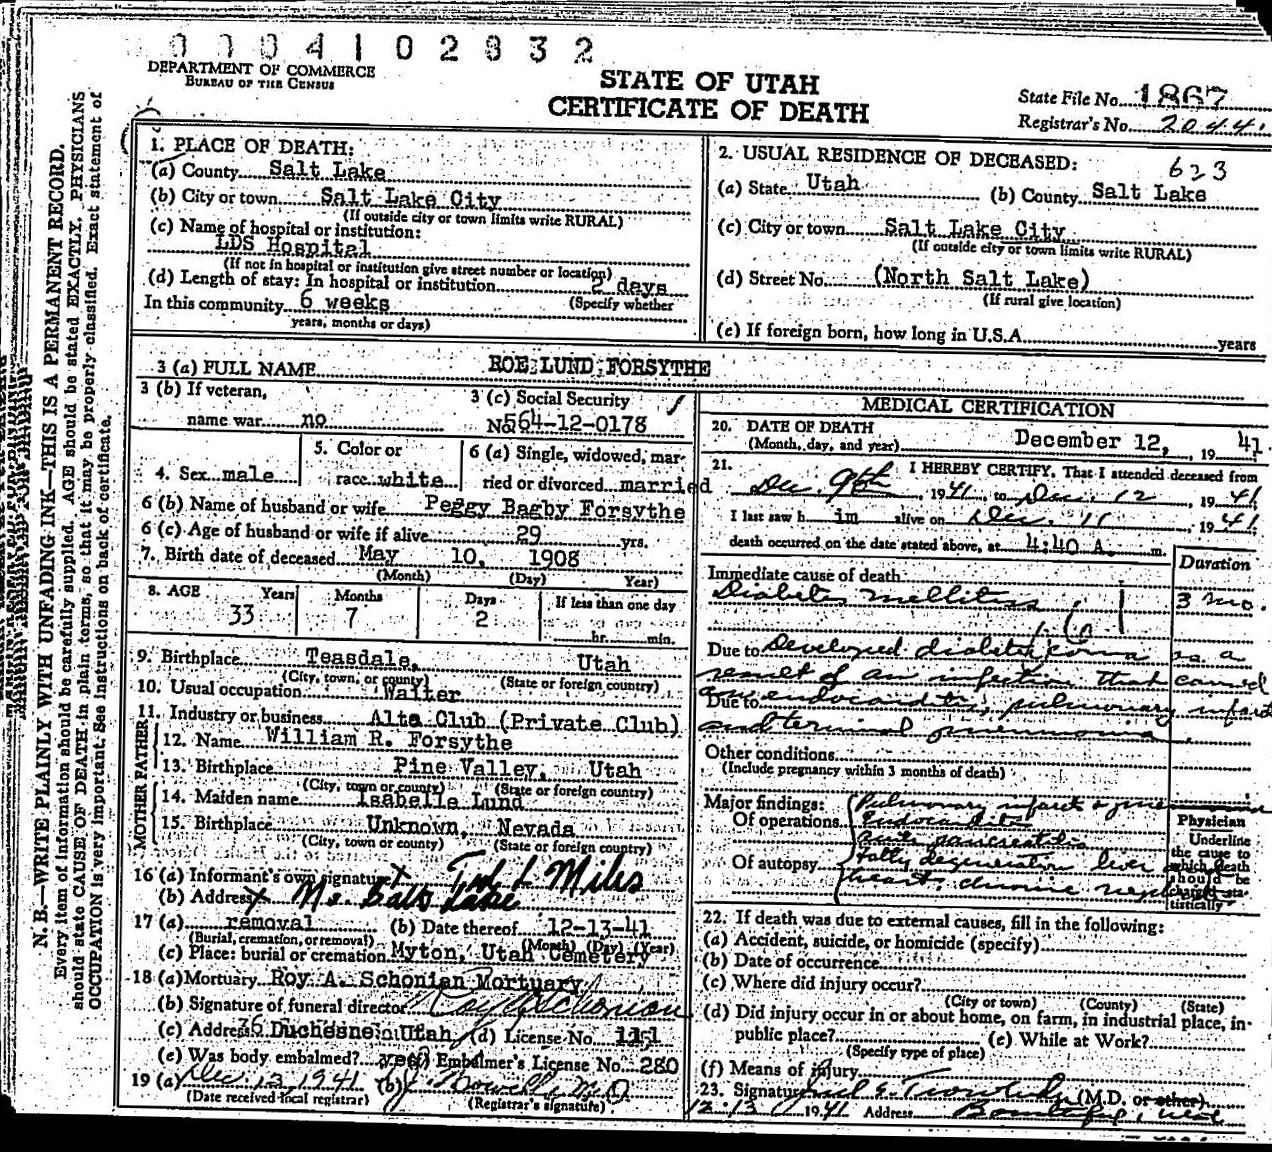 0004102832
DEPARTMENT OF COMMERCE
BUREAU OF THE CENSUS
STATE OF UTAH
CERTIFICATE OF DEATH
State File No. 1867
Registrar's No. 2044
1. PLACE OF DEATH:
(a) County Salt Lake
(b) City or town Salt Lake City
(If outside city or town limits write RURAL)
(c) Name of hospital or institution:
LDS Hospital
(If not in hospital or institution give street number or location)
(d) Length of stay: In hospital or institution 2 days
In this community 6 weeks (Specify whether
years, months or days)
2. USUAL RESIDENCE OF DECEASED: 623
(a) State Utah (b) County Salt Lake
(c) City or town Salt Lake City
(If outside city or town limits write RURAL)
(d) Street No. (North Salt Lake)
(If rural give location)
(e) If foreign born, how long in U.S.A. years
3 (a) FULL NAME ROE LUND FORSYTHE
3 (b) If veteran,
name war no
3 (c) Social Security
No. 564-12-0178
4. Sex male
5. Color or
race white
6 (a) Single, widowed, mar-
ried or divorced married
6 (b) Name of husband or wife Peggy Bagby Forsythe
6 (c) Age of husband or wife if alive 29 yrs.
7. Birth date of deceased May 10, 1908
(Month) (Day) Year)
8. AGE Years Months Days If less than one day
33 7 2 hr. min.
9. Birthplace Teasdale, Utah
(City, town, or county) (State or foreign country)
10. Usual occupation Waiter
11. Industry or business Alta Club (Private Club)
FATHER
12. Name William R. Forsythe
13. Birthplace Pine Valley, Utah
(City, town or county) (State or foreign country)
MOTHER
14. Maiden name Isabelle Lund
15. Birthplace Unknown, Nevada
(City, town or county) (State or foreign country)
16 (a) Informant's own signature Ted L Miles
(b) Address Lake
17 (a) removal (b) Date thereof 12-13-41
(Burial, cremation, or removal) (Month) (Day) (Year)
(c) Place: burial or cremation Myton, Utah Cemetery
18 (a) Mortuary Roy A. Schonian Mortuary
(b) Signature of funeral director Roy A Schonian
(c) Address Duchesne Utah (d) License No. 111
(e) Was body embalmed? yes (f) Embalmer's License No. 280
19 (a) Dec. 13, 1941 (b) M.D.
(Date received local registrar) (Registrar's signature)
MEDICAL CERTIFICATION
20. DATE OF DEATH
(Month, day, and year) December 12, 1941
21. I HEREBY CERTIFY, That I attended deceased from
Dec. 9th, 1941, to Dec. 12, 1941
I last saw him alive on Dec. 11, 1941
death occurred on the date stated above, at 4:40 A. m.
Duration
Immediate cause of death
Diabetes mellitus 3 mo.
Due to Developed diabetic coma as a
result of an infection that caused
Due to endocarditis, pulmonary infarct
and terminal pneumonia
Other conditions
(Include pregnancy within 3 months of death)
Major findings: Pulmonary infarct &
Of operations Endocarditis
pancreatitis
Of autopsy fatty degeneration liver
heart, chronic
Physician
Underline
the cause to
which death
should be
charged sta-
tistically
22. If death was due to external causes, fill in the following:
(a) Accident, suicide, or homicide (specify)
(b) Date of occurrence
(c) Where did injury occur?
(City or town) (County) (State)
(d) Did injury occur in or about home, on farm, in industrial place, in-
public place? (e) While at Work?
(Specify type of place)
(f) Means of injury
23. Signature (M.D. or other)
12/13 1941 Address Bountiful, Utah
N. B.—WRITE PLAINLY WITH UNFADING INK—THIS IS A PERMANENT RECORD.
Every item of information should be carefully supplied. AGE should be stated EXACTLY. PHYSICIANS
should state CAUSE OF DEATH in plain terms, so that it may be properly classified. Exact statement of
OCCUPATION is very important. See instructions on back of certificate.